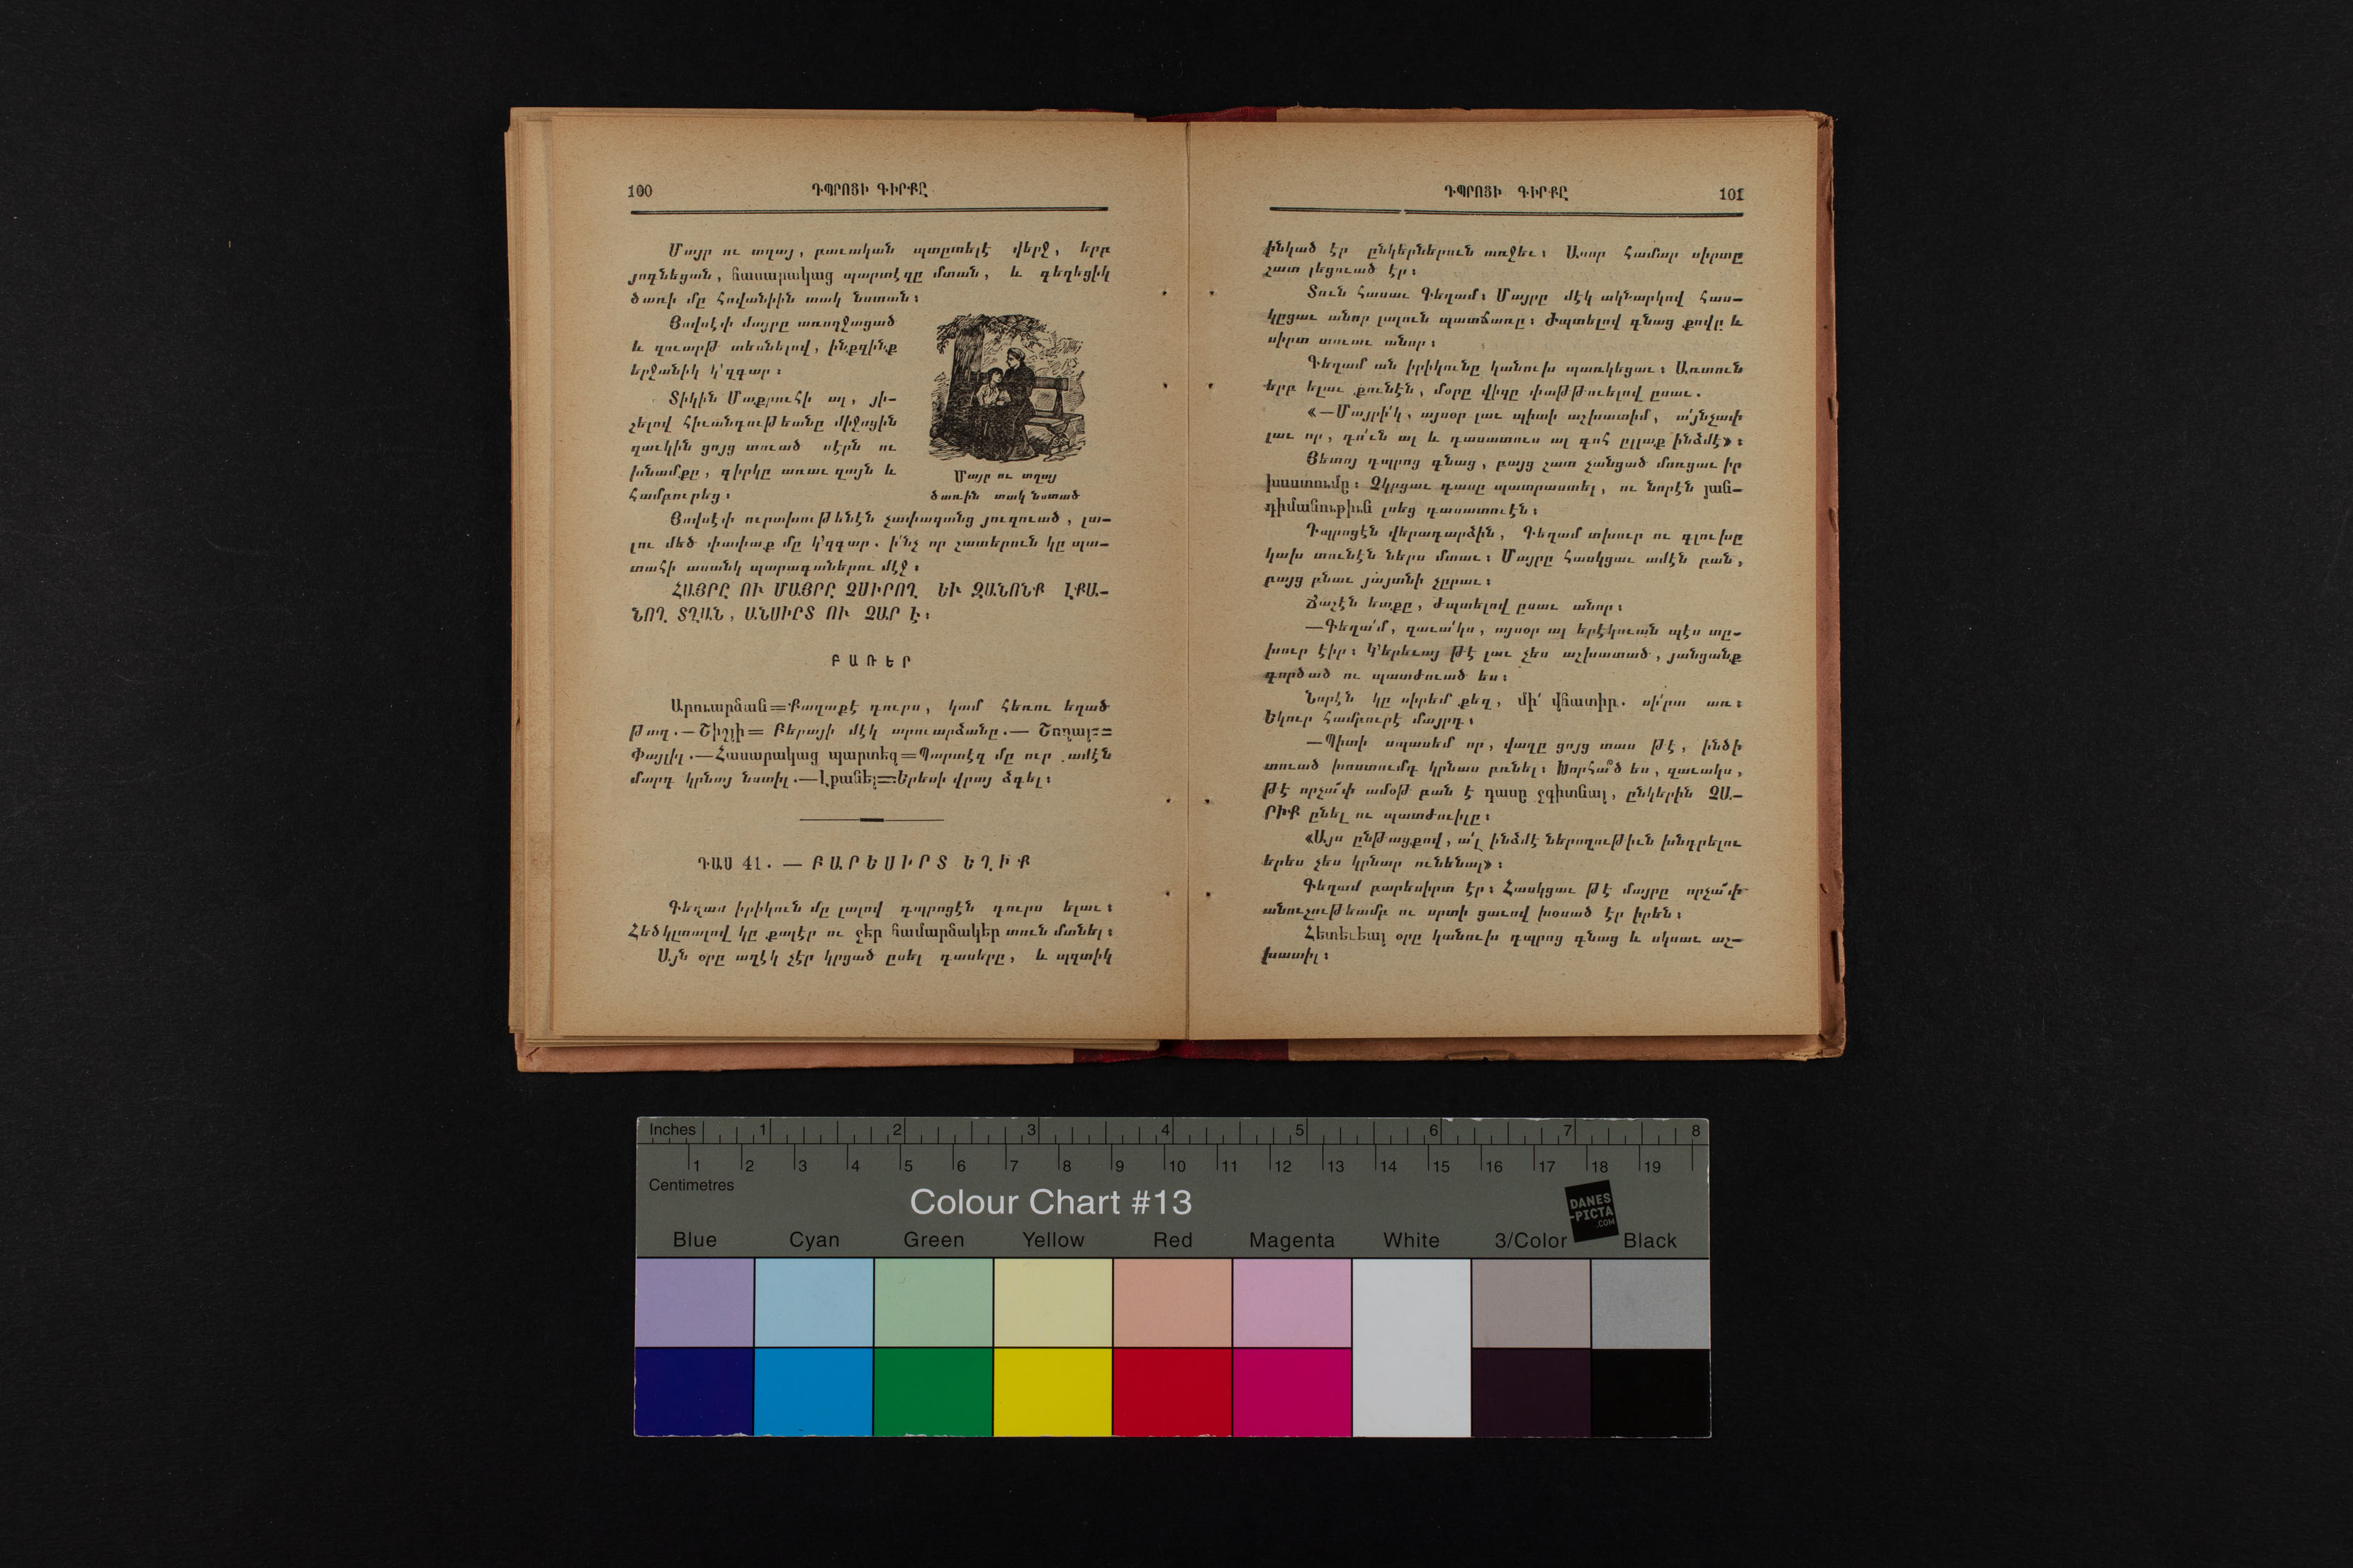 100
ԴՊՐՈՅԻ ԳԻՐՔԸ
Մայր ու տղայ, բաւական պտըտելէ վերջ, երբ
յոգնեցան, հասարակաց պարտէզը մտան, և գեղեցիկ
ծառի մը հովանիին տակ նստան։
Յովսէփ մայրը առողջացած
և զուարթ տեսնելով, ինքզինք
երջանիկ կ՚զգար։
Տիկին Մաքրուհի ալ, յի-
շելով հիւանդութեանը միջոցին
զաւկին ցոյց տուած սէրն ու
խնամքը, գիրկը առաւ զայն և
համբուրեց։
Մայր ու տղայ
ծառին տակ նստած
Յովսէփ ուրախութենէն չափազանց յուզուած, լա-
լու մեծ փափաք մը կ՚զգար. ի՛նչ որ շատերուն կը պա-
տահի ասանկ պարագաներու մէջ։
ՀԱՅՐԸ ՈՒ ՄԱՅՐԸ ՉՍԻՐՈՂ ԵՒ ԶԱՆՈՆՔ ԼՔԱ-
ՆՈՂ ՏՂԱՆ, ԱՆՍԻՐՏ ՈՒ ՉԱՐ Է։
ԲԱՌԵՐ
Արուարձան=Քաղաքէ դուրս, կամ հեռու եղած
թաղ.—Շիշլի= Բերայի մէկ արուարձանը.— Շողալ==
Փայլիլ.—Հասարակաց պարտեզ=Պարտէզ մը ուր ամէն
մարդ կրնայ նստիլ.—Լքանել=Երեսի վրայ ձգել։
ԴԱՍ 41. — ԲԱՐԵՍԻՐՏ ԵՂԻՔ
Գեղամ իրիկուն մը լալով դպրոցէն դուրս ելաւ։
Հեծկլտալով կը քալէր ու չէր համարձակեր տուն մտնել։
Այն օրը աղէկ չէր կրցած ըսել դասերը, և պզտիկ
ԴՊՐՈՅԻ ԳԻՐՔԸ
101
ինկած էր ընկերներուն առջեւ։ Ասոր համար սիրտը
շատ լեցուած էր։
Տուն հասաւ Գեղամ։ Մայրը մէկ ակնարկով հաս-
կըցաւ անոր լալուն պատճառը։ Ժպտելով գնաց քովը և
սիրտ տուաւ անոր։
Գեղամ ան իրիկունը կանուխ պառկեցաւ։ Առտուն
երբ ելաւ քունէն, մօրը վիզը փաթթուելով ըսաւ.
«—Մայրի՛կ, այսօր լաւ պիտի աշխատիմ, ա՛յնչափ
լաւ որ, դո՛ւն ալ և դասատուս ալ գոհ ըլլաք ինձմէ»։
Յետոյ դպրոց գնաց, բայց շատ չանցած մոռցաւ իր
խոստումը։ Չկրցաւ դասը պատրաստել, ու նորէն յան-
դիմանութիւն լսեց դասատուէն։
Դպրոցէն վերադարձին, Գեղամ տխուր ու գլուխը
կախ տունէն ներս մտաւ։ Մայրը հասկցաւ ամէն բան,
բայց բնաւ յայտնի չըրաւ։
Ճաշէն ետքը, ժպտելով ըսաւ անոր։
—Գեղա՛մ, զաւա՛կս, այսօր ալ երէկուան պէս տը-
խուր էիր։ Կ՚երեւայ թէ լաւ չես աշխատած, յանցանք
գործած ու պատժուած ես։
Նորէն կը սիրեմ քեզ, մի՛ վհատիր. սի՛րտ առ։
Եկուր համբուրէ մայրդ։
—Պիտի սպասեմ որ, վաղը ցոյց տաս թէ, ինծի
տուած խոստումդ կրնաս բռնել։ Խորհա՞ծ ես, զաւակս,
թէ որչա՜փ ամօթ բան է դասը չգիտնալ, ընկերին ՉԱ-
ՐԻՔ ընել ու պատժուիլը։
«Այս ընթացքով, ա՛լ ինձմէ ներողութիւն խնդրելու
երես չես կրնար ունենալ»։
Գեղամ բարեսիրտ էր։ Հասկցաւ թէ մայրը որչա՜փ
անուշութեամբ ու սրտի ցաւով խօսած էր իրեն։
Հետեւեալ օրը կանուխ դպրոց գնաց և սկսաւ աշ-
խատիլ։
Inches 1 2 3 4 5 6 7 8
1 2 3 4 5 6 7 8 9 10 11 12 13 14 15 16 17 18 19
Centimetres
Colour Chart #13
DANES
-PICTA
.COM
Blue Cyan Green Yellow Red Magenta White 3/Color Black